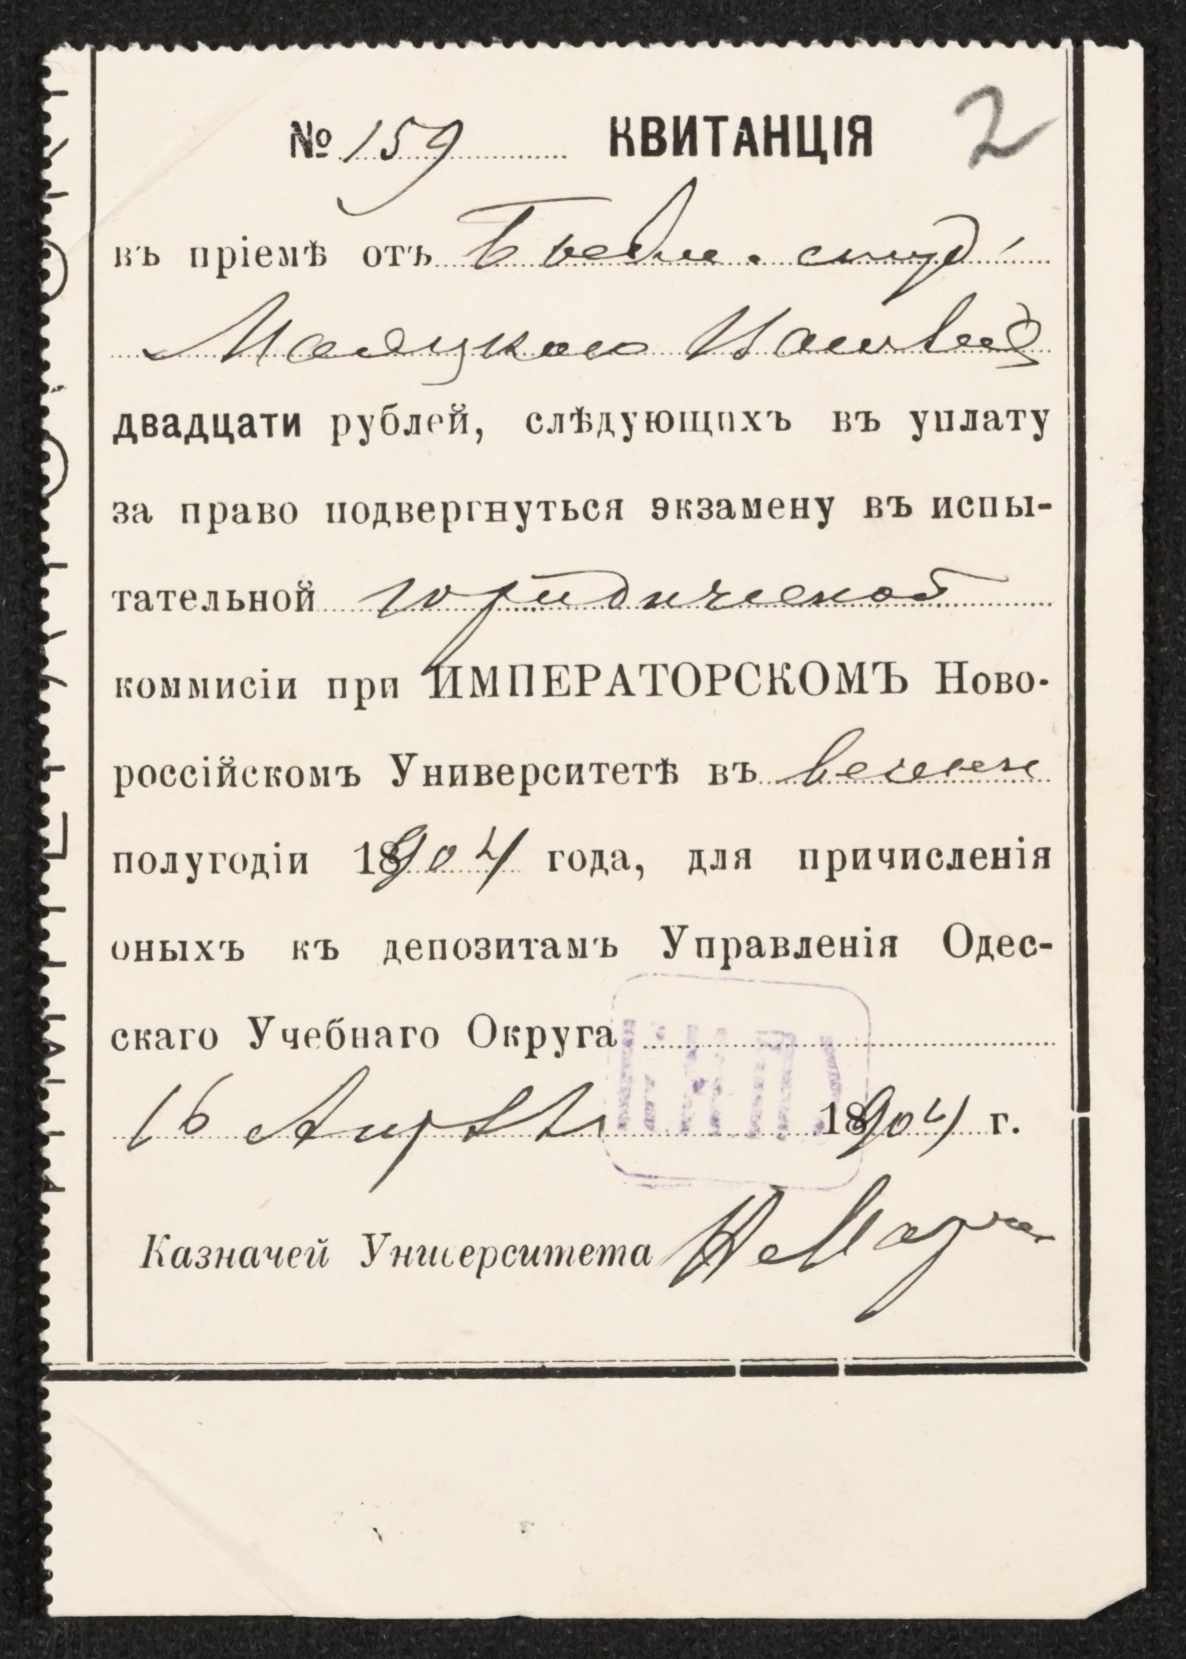 № 159 КВИТАНЦІЯ 2
въ пріемѣ отъ студ.
двадцати рублей, слѣдующихъ въ уплату
за право подвергнуться экзамену въ испы-
тательной юридической
коммисіи при ИМПЕРАТОРСКОМЪ Ново-
россійскомъ Университетѣ въ
полугодіи 18904 года, для причисленія
оныхъ къ депозитамъ Управленія Одес-
скаго Учебнаго Округа
16 Августа 18904 г.
Казначей Университета